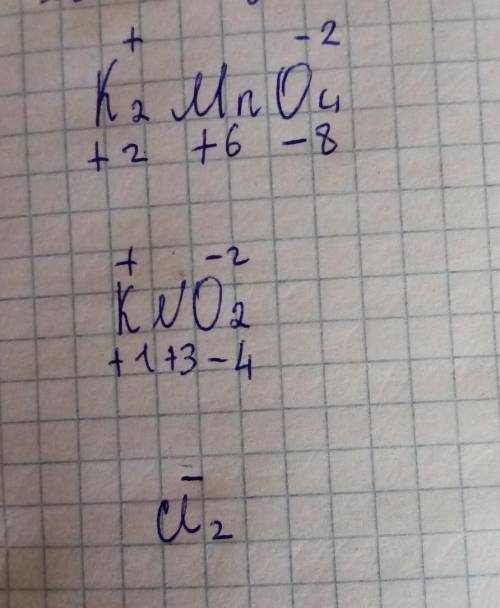 + -2
K₂ Mn O₄
+2 +6 -8
+ -2
KNO₂
+1+3-4
-
Cl₂